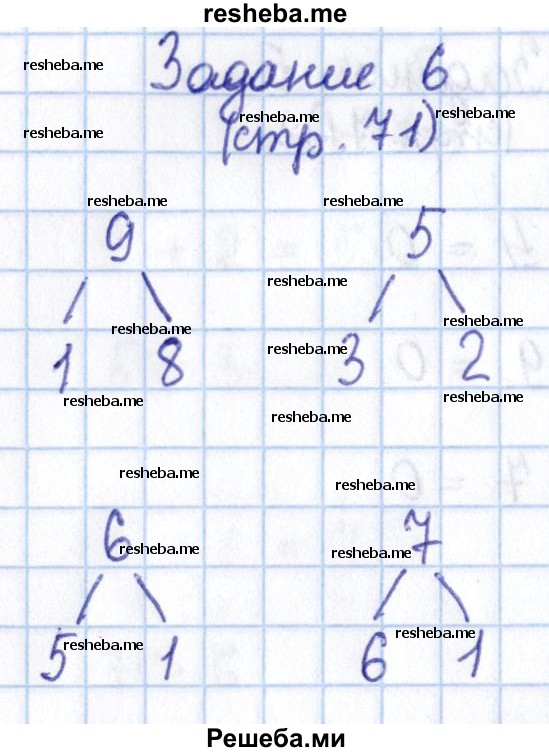 resheba.me
resheba.me
Задание 6
resheba.me resheba.me resheba.me
(стр. 71)
resheba.me resheba.me
9 5
resheba.me
resheba.me resheba.me
1 8 3 2
resheba.me
resheba.me resheba.me
resheba.me
resheba.me
resheba.me
6 7
resheba.me resheba.me
resheba.me resheba.me
5 1 6 1
Решеба.ми